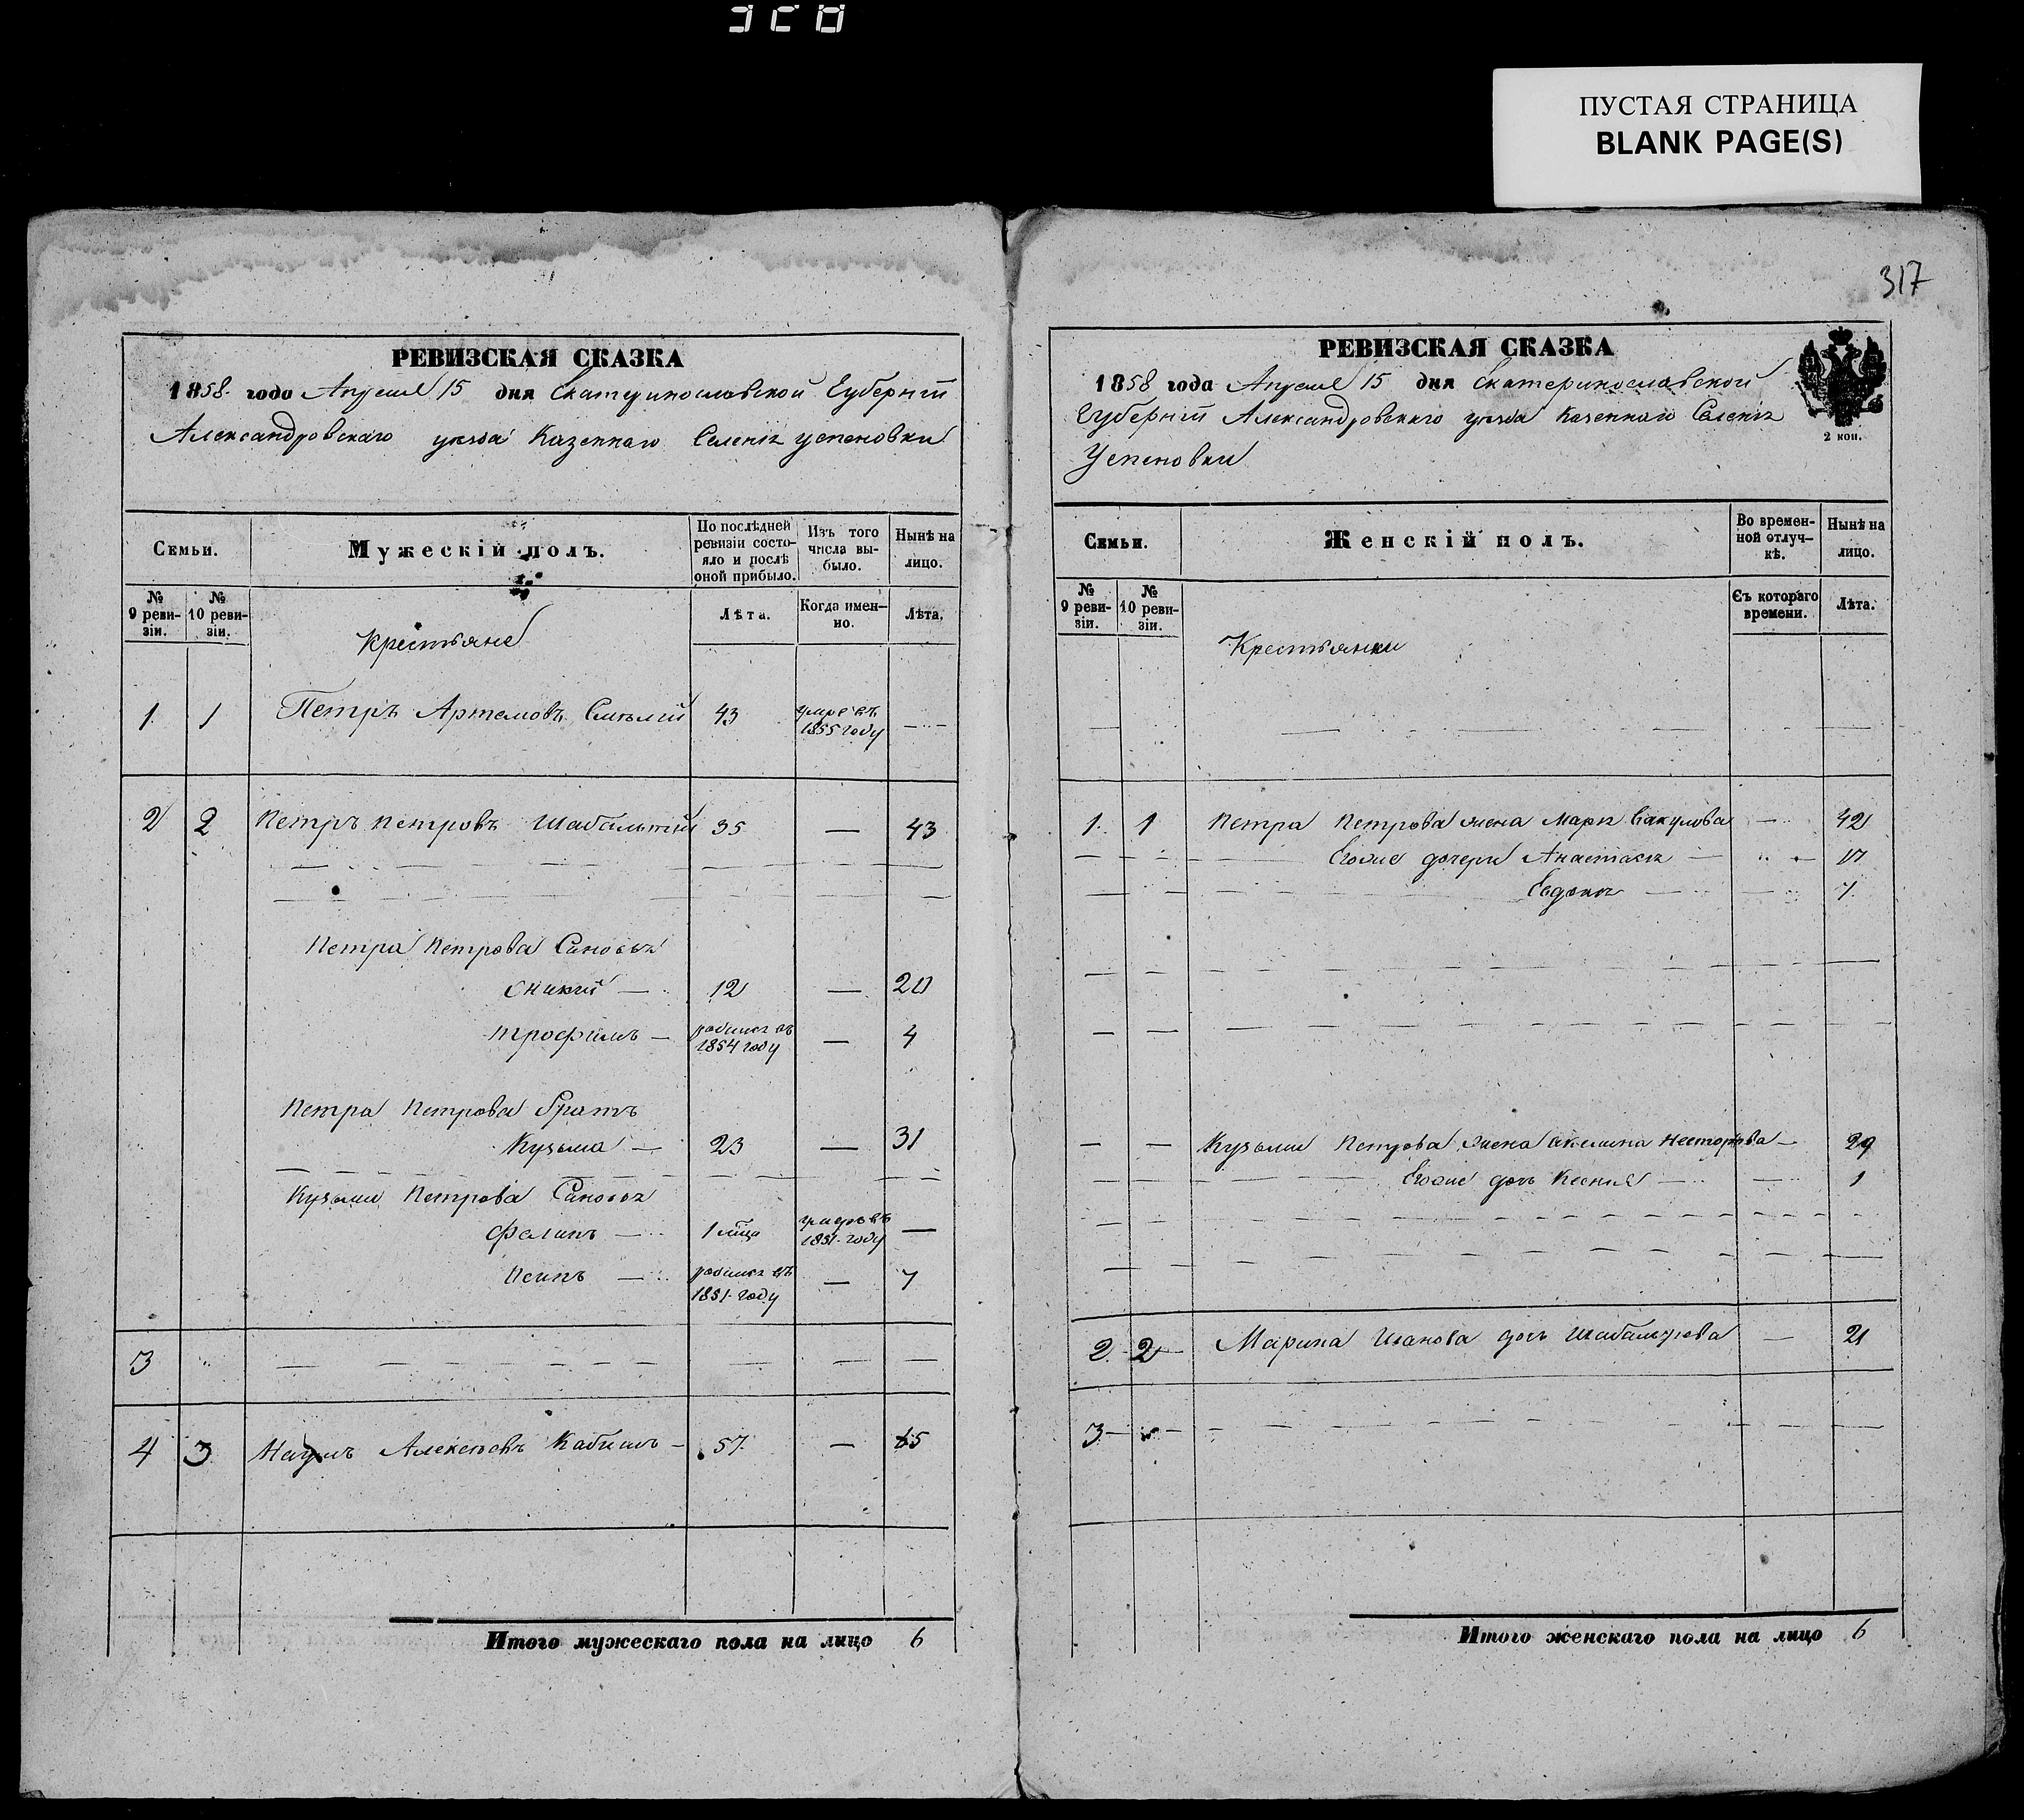 ПУСТАЯ СТРАНИЦА
BLANK PAGE(S)
317
РЕВИЗСКАЯ СКАЗКА
1858 года Апреля 15 дня Екатеринославской Губерніи
Александровскаго уезда Казеннаго Селенія Успеновки
Семьи.
Мужескій полъ.
По послѣдней ревизіи состояло и послѣ оной прибыло.
Изъ того числа выбыло.
Нынѣ на лицо.
№ 9 ревизіи.
№ 10 ревизіи.
Лѣта.
Когда именно.
Лѣта.
Крестьяне
1 1 Петръ Артемовъ 43 умре въ 1855 году —
2 2 Петръ Петровъ 35 — 43
Петра Петрова Сановья
12 — 20
Трофимъ — родился въ 1854 году — 4
Петра Петрова братъ
Кузьма — 23 — 31
Кузьмы Петрова Сановья
Филипъ — 1 мца умеръ въ 1851 году —
родился въ 1851 году — 7
3
4 3 Наумъ Алексеевъ 57 — 65
Итого мужескаго пола на лицо 6
РЕВИЗСКАЯ СКАЗКА
1858 года Апреля 15 дня Екатеринославской
Губерніи Александровскаго уезда Казеннаго Селенія
Успеновки
2 коп.
Семьи.
Женскій полъ.
Во временной отлучкѣ.
Нынѣ на лицо.
№ 9 ревизіи.
№ 10 ревизіи.
Съ котораго времени.
Лѣта.
Крестьянки
1 1 Петра Петрова жена Марія Вакулова — 42
Егоже дочери Анастасія — 17
Евдокія — 7
Кузьмы Петрова жена Акилина Несторова — 29
Егоже дочь Ксенія — 1
2 2 Марина Иванова дочь — 21
3
Итого женскаго пола на лицо 6